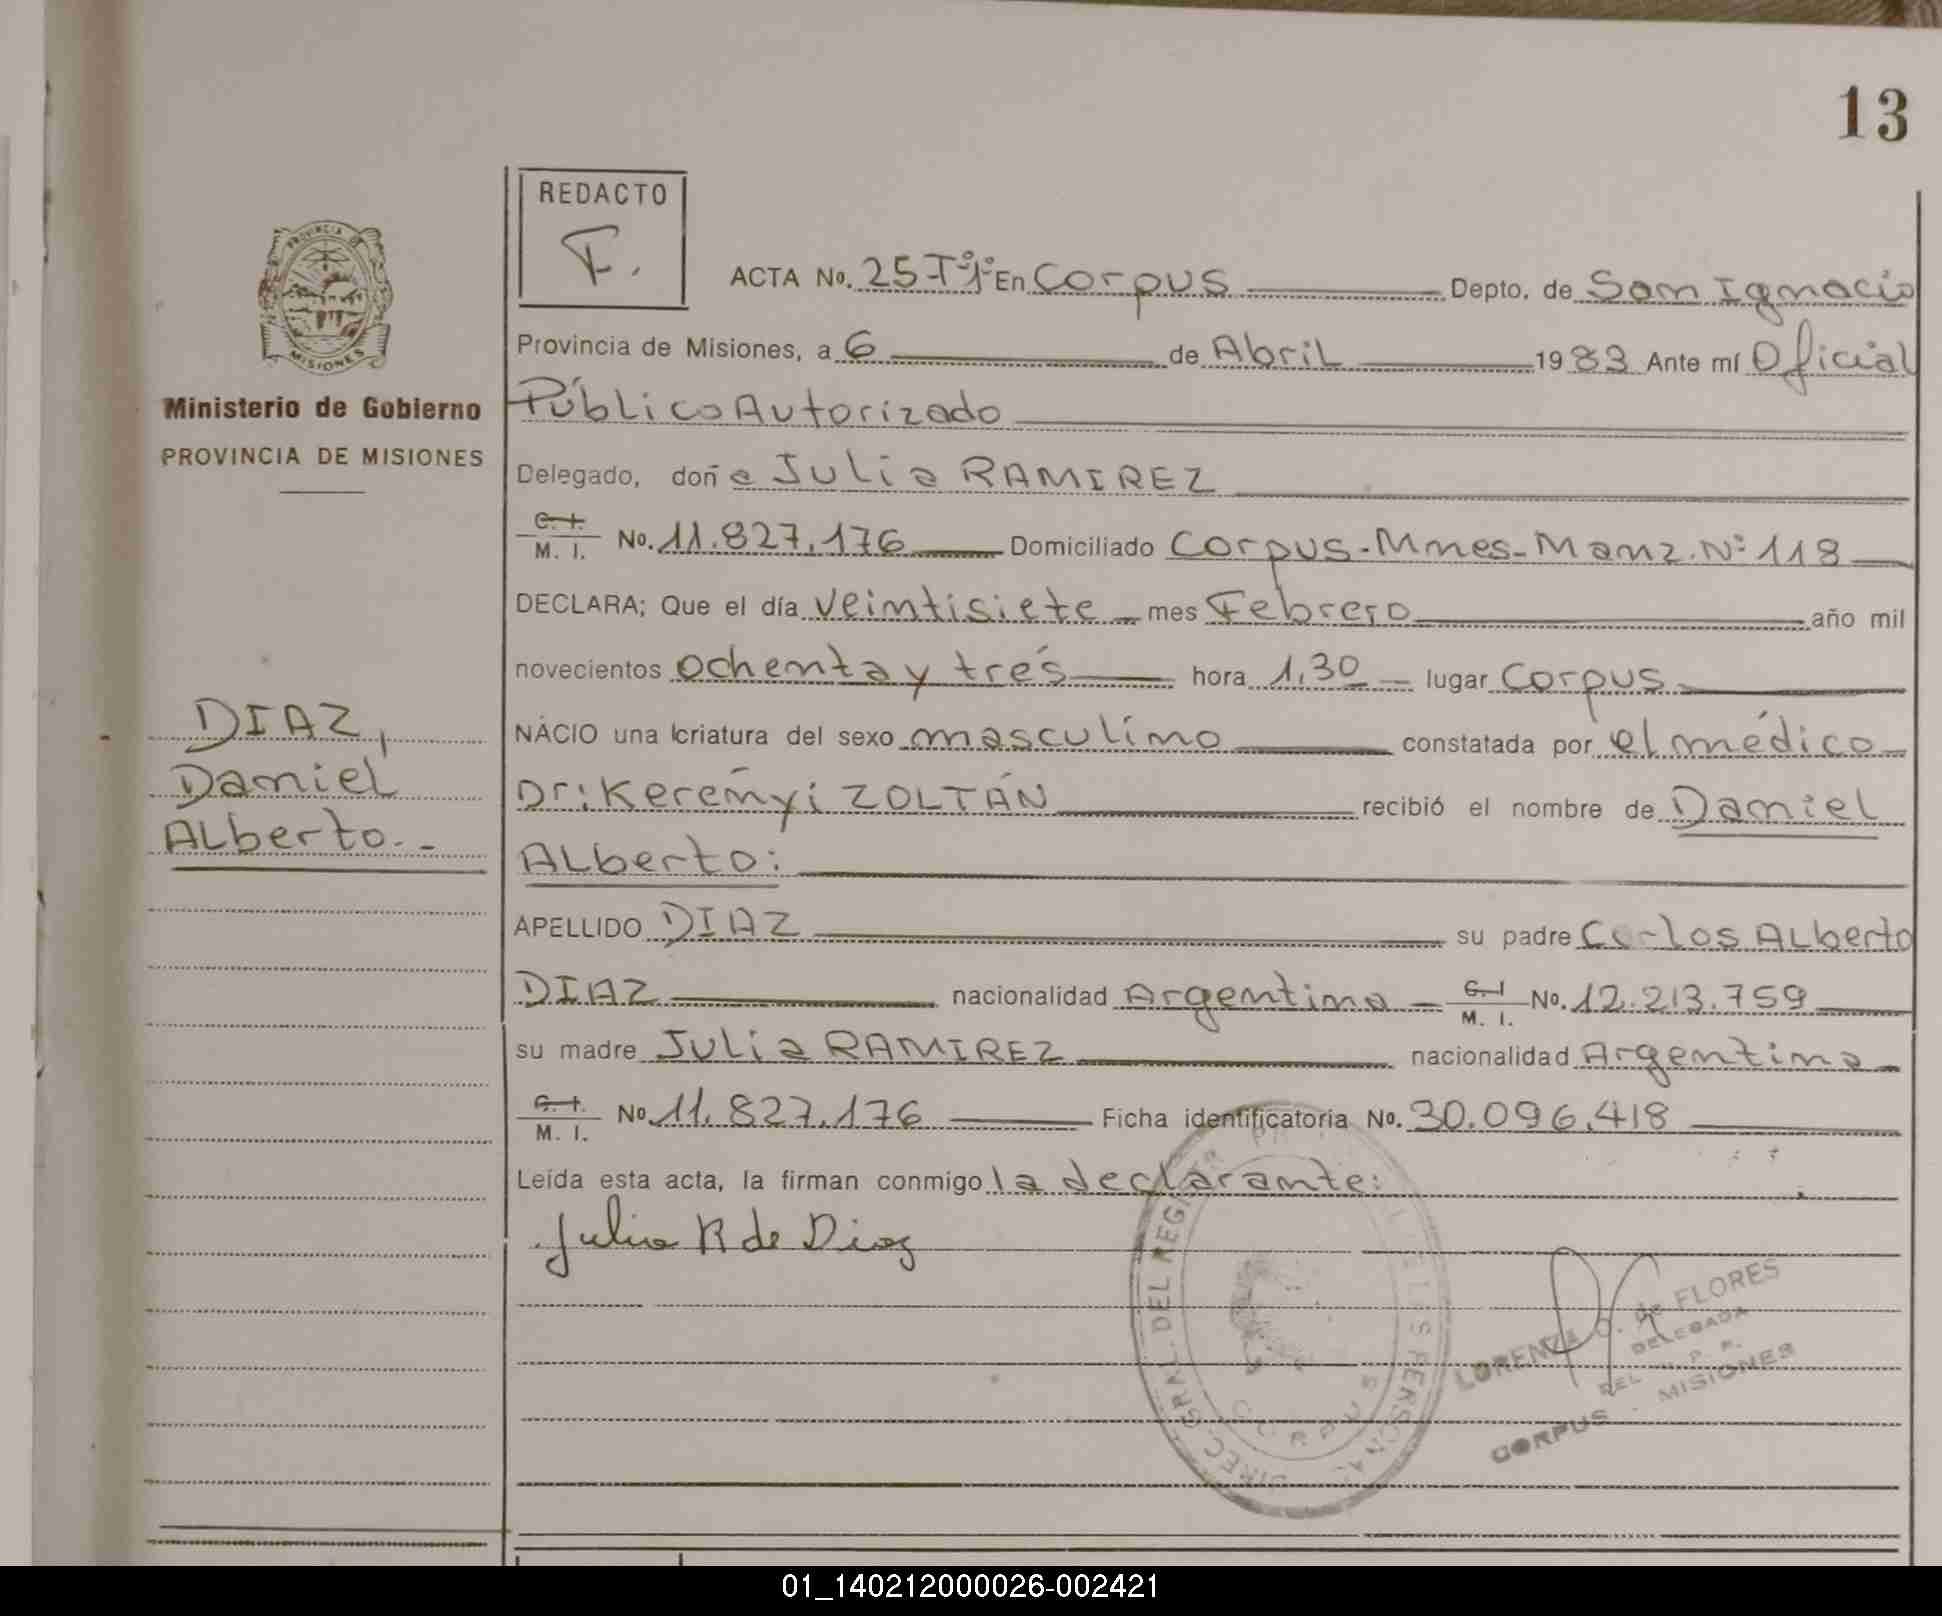 13
REDACTO
F.
ACTA No. 25 Tº1º En Corpus Depto. de San Ignacio
Provincia de Misiones, a 6 de Abril 1983 Ante mí Oficial
Público Autorizado
Ministerio de Gobierno
PROVINCIA DE MISIONES
Delegado, doña Julia RAMIREZ
C. I. M. I. No. 11.827.176 Domiciliado Corpus-Mnes-Manz. Nº 118
DECLARA; Que el día veintisiete mes Febrero año mil
novecientos ochenta y tres hora 1,30 lugar Corpus
DIAZ,
Daniel
Alberto.-
NACIO una criatura del sexo masculino constatada por el médico
Dr: Kerényi ZOLTÁN recibió el nombre de Daniel
Alberto:
APELLIDO DIAZ su padre Carlos Alberto
DIAZ nacionalidad Argentina C. I. M. I. No. 12.213.759
su madre Julia RAMIREZ nacionalidad Argentina
C. I. M. I. No. 11.827.176 Ficha identificatoria No. 30.096.418
Leída esta acta, la firman conmigo la declarante:
Julia R de Diaz
DIREC. GRAL. DEL REG
CORPUS
LORENZA O. de FLORES
DELEGADA
DEL R. P. P.
CORPUS - MISIONES
PROVINCIA DE
MISIONES
01_140212000026-002421